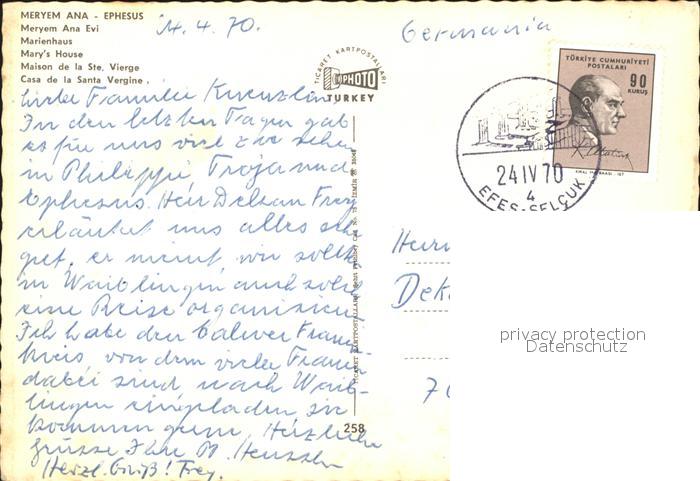 MERYEM ANA - EPHESUS
Meryem Ana Evi
Marienhaus
Mary's House
Maison de la Ste, Vierge
Casa de la Santa Vergine.
24.4.70.
Liebe Familie
In den letzten Tagen gab
es für uns viel zu sehen
in Philippi, Troja und
Ephesus. Herr Dekan Frey
erläutert uns alles sehr
gut, er meint, wir sollten
in Waiblingen auch solch
eine Reise organisieren.
Ich habe den Calwer Frauen-
kreis von dem viele Frauen
dabei sind nach Waib-
lingen eingeladen, sie
kommen gerne. Herzliche
Grüsse Ihre M.
Herzl. Gruß! Frey.
TICARET KARTPOSTALLARI
PHOTO
TURKEY
258
Germania
TÜRKİYE CUMHURİYETİ
POSTALARI
90
KURUŞ
K. Atatürk
24 IV 70
4
EFES-SELÇUK
Herrn
Dek
7
privacy protection
Datenschutz